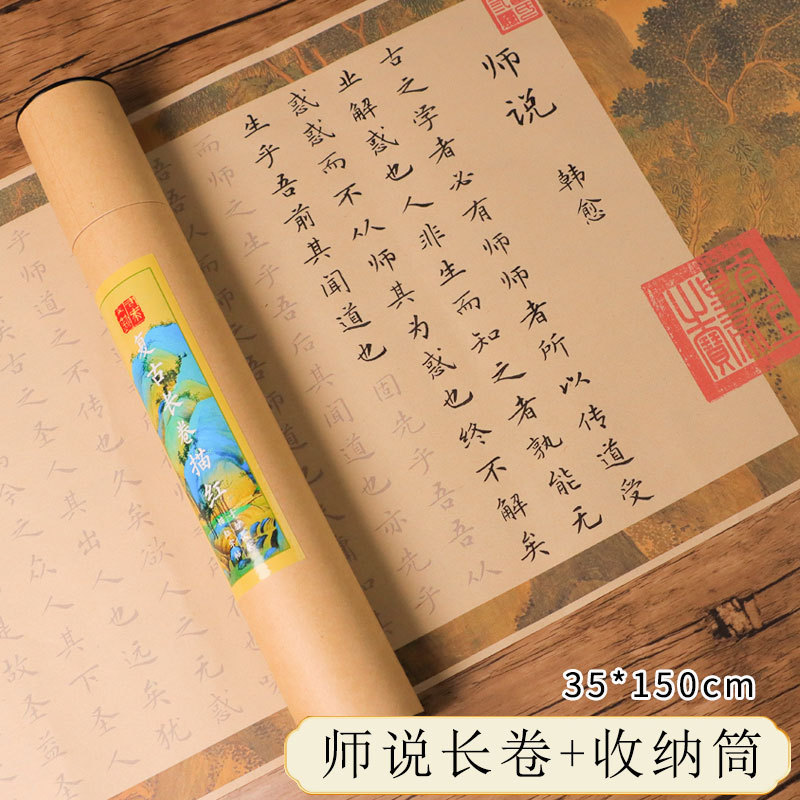 师说
韩愈
古之学者必有师师者所以传道受
业解惑也人非生而知之者孰能无
惑惑而不从师其为惑也终不解矣
生乎吾前其闻道也固先乎吾吾从
而师之生乎吾后其闻道也亦先乎
乎师道之不传也久矣欲人之无惑
矣古之圣人其出人也远矣犹
今之众人其下圣
是故圣益圣
复古长卷描红
35*150cm
师说长卷+收纳筒